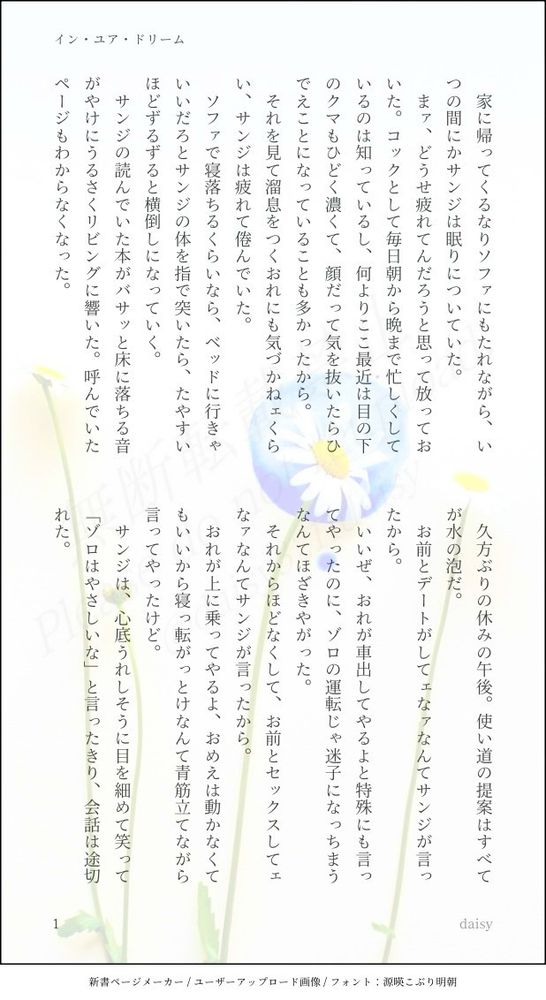 イン・ユア・ドリーム
　家に帰ってくるなりソファにもたれながら、い
つの間にかサンジは眠りについていた。
　まァ、どうせ疲れてんだろうと思って放ってお
いた。コックとして毎日朝から晩まで忙しくして
いるのは知っているし、何よりここ最近は目の下
のクマもひどく濃くて、顔だって気を抜いたらひ
でえことになっていることも多かったから。
　それを見て溜息をつくおれにも気づかねェくら
い、サンジは疲れて倦んでいた。
　ソファで寝落ちるくらいなら、ベッドに行きゃ
いいだろとサンジの体を指で突いたら、たやすい
ほどずるずると横倒しになっていく。
　サンジの読んでいた本がバサッと床に落ちる音
がやけにうるさくリビングに響いた。呼んでいた
ページもわからなくなった。
　久方ぶりの休みの午後。使い道の提案はすべて
が水の泡だ。
　お前とデートがしてェなァなんてサンジが言っ
たから。
　いいぜ、おれが車出してやるよと特殊にも言っ
てやったのに、ゾロの運転じゃ迷子になっちまう
なんてほざきやがった。
　それからほどなくして、お前とセックスしてェ
なァなんてサンジが言ったから。
　おれが上に乗ってやるよ、おめえは動かなくて
もいいから寝っ転がっとけなんて青筋立てながら
言ってやったけど。
　サンジは、心底うれしそうに目を細めて笑って
「ゾロはやさしいな」と言ったきり、会話は途切
れた。
1
daisy
無断転載
新書ページメーカー / ユーザーアップロード画像 / フォント：源暎こぶり明朝